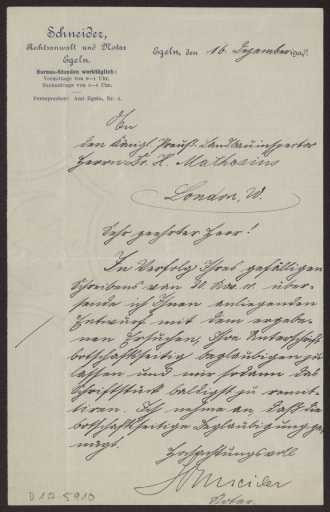 Schneider,
Rechtsanwalt und Notar
Egeln.
Bureau-Stunden werktäglich:
Vormittags von 8–1 Uhr.
Nachmittags von 3–6 Uhr.
Fernsprecher: Amt Egeln, Nr. 4.
Egeln, den 16. Dezember 190
An
den Königl. Preuß. Landbauinspector
Herrn Dr. H. Mathesius
London, W.
Sehr geehrter Herr!
In Verfolg Ihres gefälligen
Schreibens vom 20. Nov. cr. über-
sende ich Ihnen anliegenden
Entwurf mit dem ergebe-
nen Ersuchen, Ihre Unterschrift
botschaftseitig beglaubigen zu
lassen und mir sodann das
Schriftstück baldigst zu remit-
tiren. Ich nehme an, daß die
botschaftseitige Beglaubigung ge-
nügt.
Hochachtungsvoll
Schneider
Notar.
D 102-5910